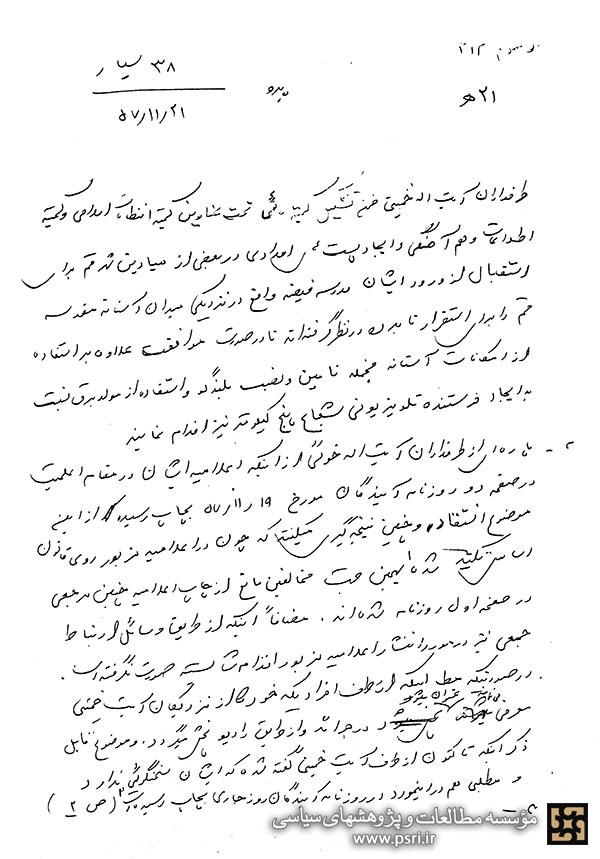 ۳۱۲
۳۸ سیار
۲۱ هـ
پیرو
۵۷/۱۱/۲۱
طرفداران آیت اله خمینی ضمن تشکیل کمیته هائی تحت عناوین کمیته انتظامات امدادی و کمیته
اطلاعات و هم آهنگی و ایجاد پست های امدادی در بعضی از میادین شهر قم برای
استقبال از ورود ایشان مدرسه فیضیه واقع در نزدیکی میدان آستانه مقدسه
قم را برای استقرار نامبرده در نظر گرفته اند تا در صورت موافقت علاوه بر استفاده
از امکانات آستانه منجمله تامین و نصب بلندگو و استفاده از مولد برق نسبت
به ایجاد فرستنده تلویزیونی بشعاع پنج کیلومتر نیز اقدام نمایند
۲ - پاره ای از طرفداران آیت اله خوئی از اینکه اعلامیه ایشان در مقام اعلمیت
در صفحه دو روزنامه آیندگان مورخ ۱۹/۱۱/۵۷ بچاپ رسیده از این
موضوع انتقاد و چنین نتیجه گیری میکنند که چون در اعلامیه مزبور روی قانون
اساسی تکیه شده بهمین جهت مخالفین مانع از چاپ اعلامیه چنین مرجعی
در صفحه اول روزنامه شده اند. مضافاً اینکه از طریق وسائل ارتباط
جمعی نیز در مورد انتشار اعلامیه مزبور اقدام شایسته صورت نگرفته است.
در صورتیکه مطالبیکه از طرف افرادیکه خود را از نزدیکان آیت خمینی
معرفی مینمایند عنوان میشود در جرائد و از طریق رادیو پخش میگردد. و موضوع قابل
ذکر اینکه تا کنون از طرف آیت خمینی گفته شده که ایشان سخنگوئی ندارد
و مطلبی هم در اینمورد در روزنامه آیندگان روز جاری بچاپ رسیده است (ص ۲)
مؤسسه مطالعات و پژوهشهای سیاسی
www.psri.ir